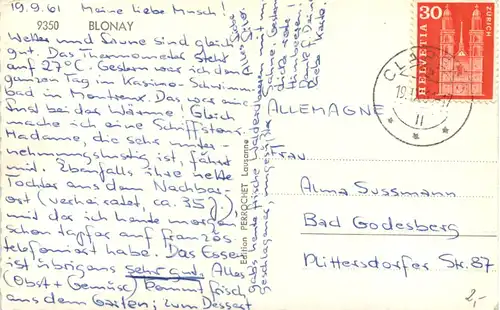 19.9.61 Meine liebe Musch!
9350 BLONAY
Wetter und Laune sind gleich
gut. Das Thermometer steht
auf 27°C. Gestern war ich den
ganzen Tag im Kasino-Schwimm-
bad in Montreux. Das war eine
Lust bei der Wärme. Gleich
mache ich eine Schiffstour.
Madame, die sehr unter-
nehmungslustig ist, fährt
mit. Ebenfalls ihre nette
Tochter aus dem Nachbar-
ort (verheiratet, ca. 35 J.)
mit der ich heute morgen
schon tapfer auf französ.
telefoniert habe. Das Essen
ist übrigens sehr gut. Alles
(Obst + Gemüse) kommt frisch
aus dem Garten; zum Dessert
gab's heute frische Walderdbeeren mit
geschlagener, ungesüßter Sahne.
Alles Gute
Edition PERROCHET Lausanne
30
HELVETIA
ZÜRICH
19.
11
ALLEMAGNE
Frau
Alma Sussmann
Bad Godesberg
Plittersdorfer Str. 87
2,-